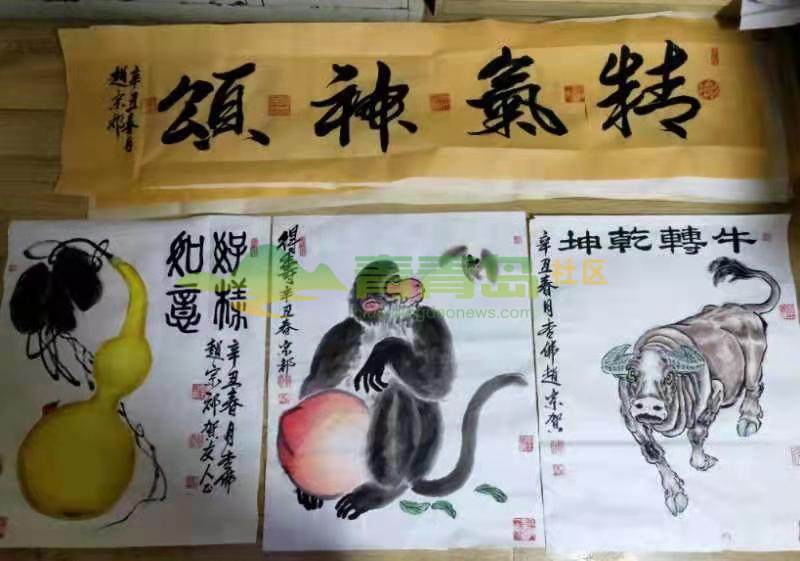 精氣神頌
辛丑春月
趙宗
好樣
如意
辛丑春月
趙宗 賀友人
得壽 辛丑春 宗
牛轉乾坤
辛丑春月 佛趙宗賀
青青岛社区